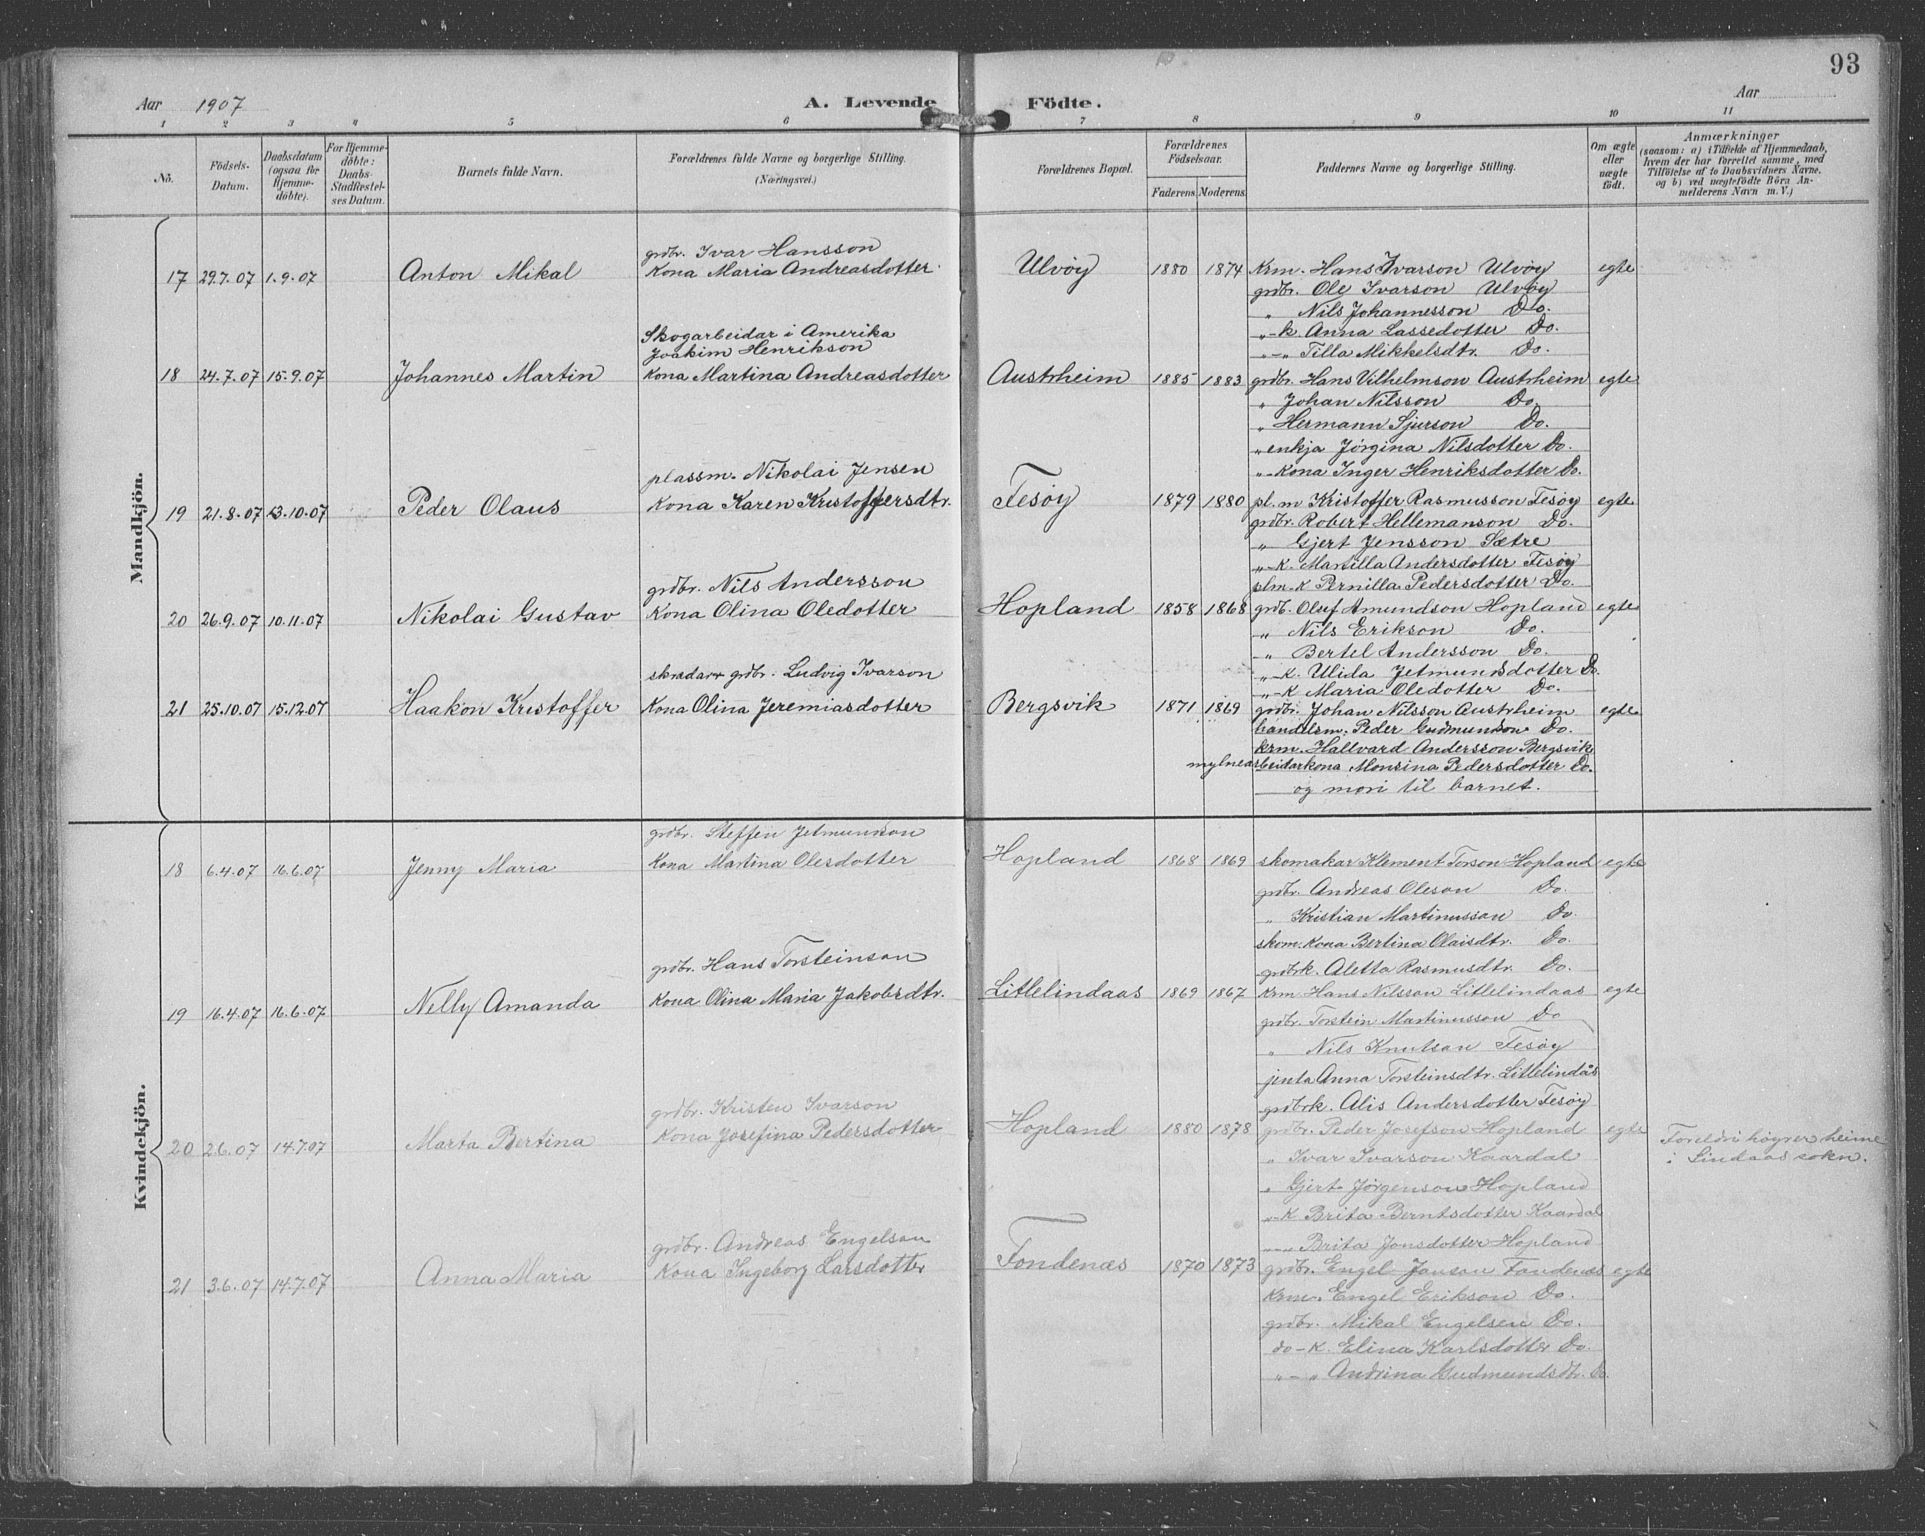 93
Aar 1907
A. Levende Födte.
Aar
1 2 3 4 5 6 7 8 9 10 11
No. Födsels-Datum. Daabsdatum (ogsaa for Hjemmedöbte). For Hjemmedöbte: Daabs-Stadfæstelses Datum. Barnets fulde Navn. Forældrenes fulde Navne og borgerlige Stilling. (Næringsvei.) Forældrenes Bopæl. Forældrenes Födselsaar. Faderens. Moderens. Faddernes Navne og borgerlige Stilling. Om ægte eller uægte födt. Anmærkninger (saasom: a) i Tilfælde af Hjemmedaab, hvem der har forrettet samme, med Tilföielse af to Daabsvidners Navne, og b) ved uægtefödte Börn Anmelderens Navn m. V.)
Mandkjön.
grdbr. Ivar Hansson
17 29.7.07 1.9.07 Anton Mikal Kona Maria Andreasdotter Ulvøy 1880 1874 Krm. Hans Ivarson Ulvøy egte
grdbr. Ole Ivarson Ulvøy
" Nils Johannesson Do.
"-k. Anna Lassedotter Do.
"-" Tilla Mikkelsdtr. Do.
Skogarbeidar i Amerika
Joakim Henrikson
18 24.7.07 15.9.07 Johannes Martin Kona Martina Andreasdotter Austrheim 1885 1883 grdbr. Hans Vilhelmson Austrheim egte
" Johan Nilsson Do.
" Hermann Sjurson Do.
" enkja Jørgina Nilsdotter Do.
"-Kona Inger Henriksdotter Do.
plassm. Nikolai Jensen
19 21.8.07 13.10.07 Peder Olaus Kona Karen Kristoffersdtr. Fesøy 1879 1880 pl.m Kristoffer Rasmusson Fesøy egte
grdbr. Robert Hellemanson Do.
" Gjert Jensson Sætre
"-K. Martilla Andersdotter Fesøy
plm-K Pernilla Pedersdotter Do.
grdbr. Nils Andersson
20 26.9.07 10.11.07 Nikolai Gustav Kona Olina Oledotter Hopland 1858 1868 grdb. Oluf Amundson Hopland egte
" Nils Erikson Do.
" Bertel Andersson Do.
"-K. Ulida Jetmundsdotter Do.
"-K Maria Oledotter Do.
skrædarr grdbr. Ludvig Ivarson
21 25.10.07 15.12.07 Haakon Kristoffer Kona Olina Jeremiasdotter Bergsvik 1871 1869 grdbr. Johan Nilsson Austrheim egte
handelsm. Peder Gudmundson Do.
Krm. Hallvard Andersson Bergsvik
mylnearbeidarkona Monsina Pedersdotter Do.
og mori til barnet.
Kvindekjön.
grdbr. Steffen Jetmundson
18 6.4.07 16.6.07 Jenny Maria Kona Martina Olesdotter Hopland 1868 1869 skomakar Klement Torson Hopland egte
grdbr. Andreas Oleson Do.
" Kristian Martinusson Do.
skom. Kona Bertina Olaisdtr. Do.
grdbrk. Aletta Rasmusdtr. Do.
grdbr. Hans Torsteinson
19 16.4.07 16.6.07 Nelly Amanda Kona Olina Maria Jakobsdtr. Litlelindaas 1869 1867 Krm. Hans Nilsson Litlelindaas egte
grdbr. Torstein Martinusson Do
" Nils Knutson Fesøy
jenta Anna Torsteinsdtr. Litlelindås
grdbrk. Alis Andersdotter Fesøy
grdbr. Kristen Ivarson
20 2.6.07 14.7.07 Marta Bertina Kona Josefina Pedersdotter Hopland 1880 1878 grdbr. Peder Josefson Hopland egte Foreldri høyrer heime
" Ivar Ivarson Kaardal i Lindaas sokn.
" Gjert Jørgenson Hopland
"-K Brita Berntsdotter Kaardal
"-" Brita Jonsdotter Hopland
grdbr. Andreas Engelson
21 3.6.07 14.7.07 Anna Maria Kona Ingeborg Larsdotter Fondenæs 1870 1873 grdbr. Engel Janson Fondenæs egte
Krm. Engel Erikson Do.
grdbr. Mikal Engelsen Do.
do-K. Elina Karlsdotter Do.
"-" Andrina Gudmundsdtr. Do.